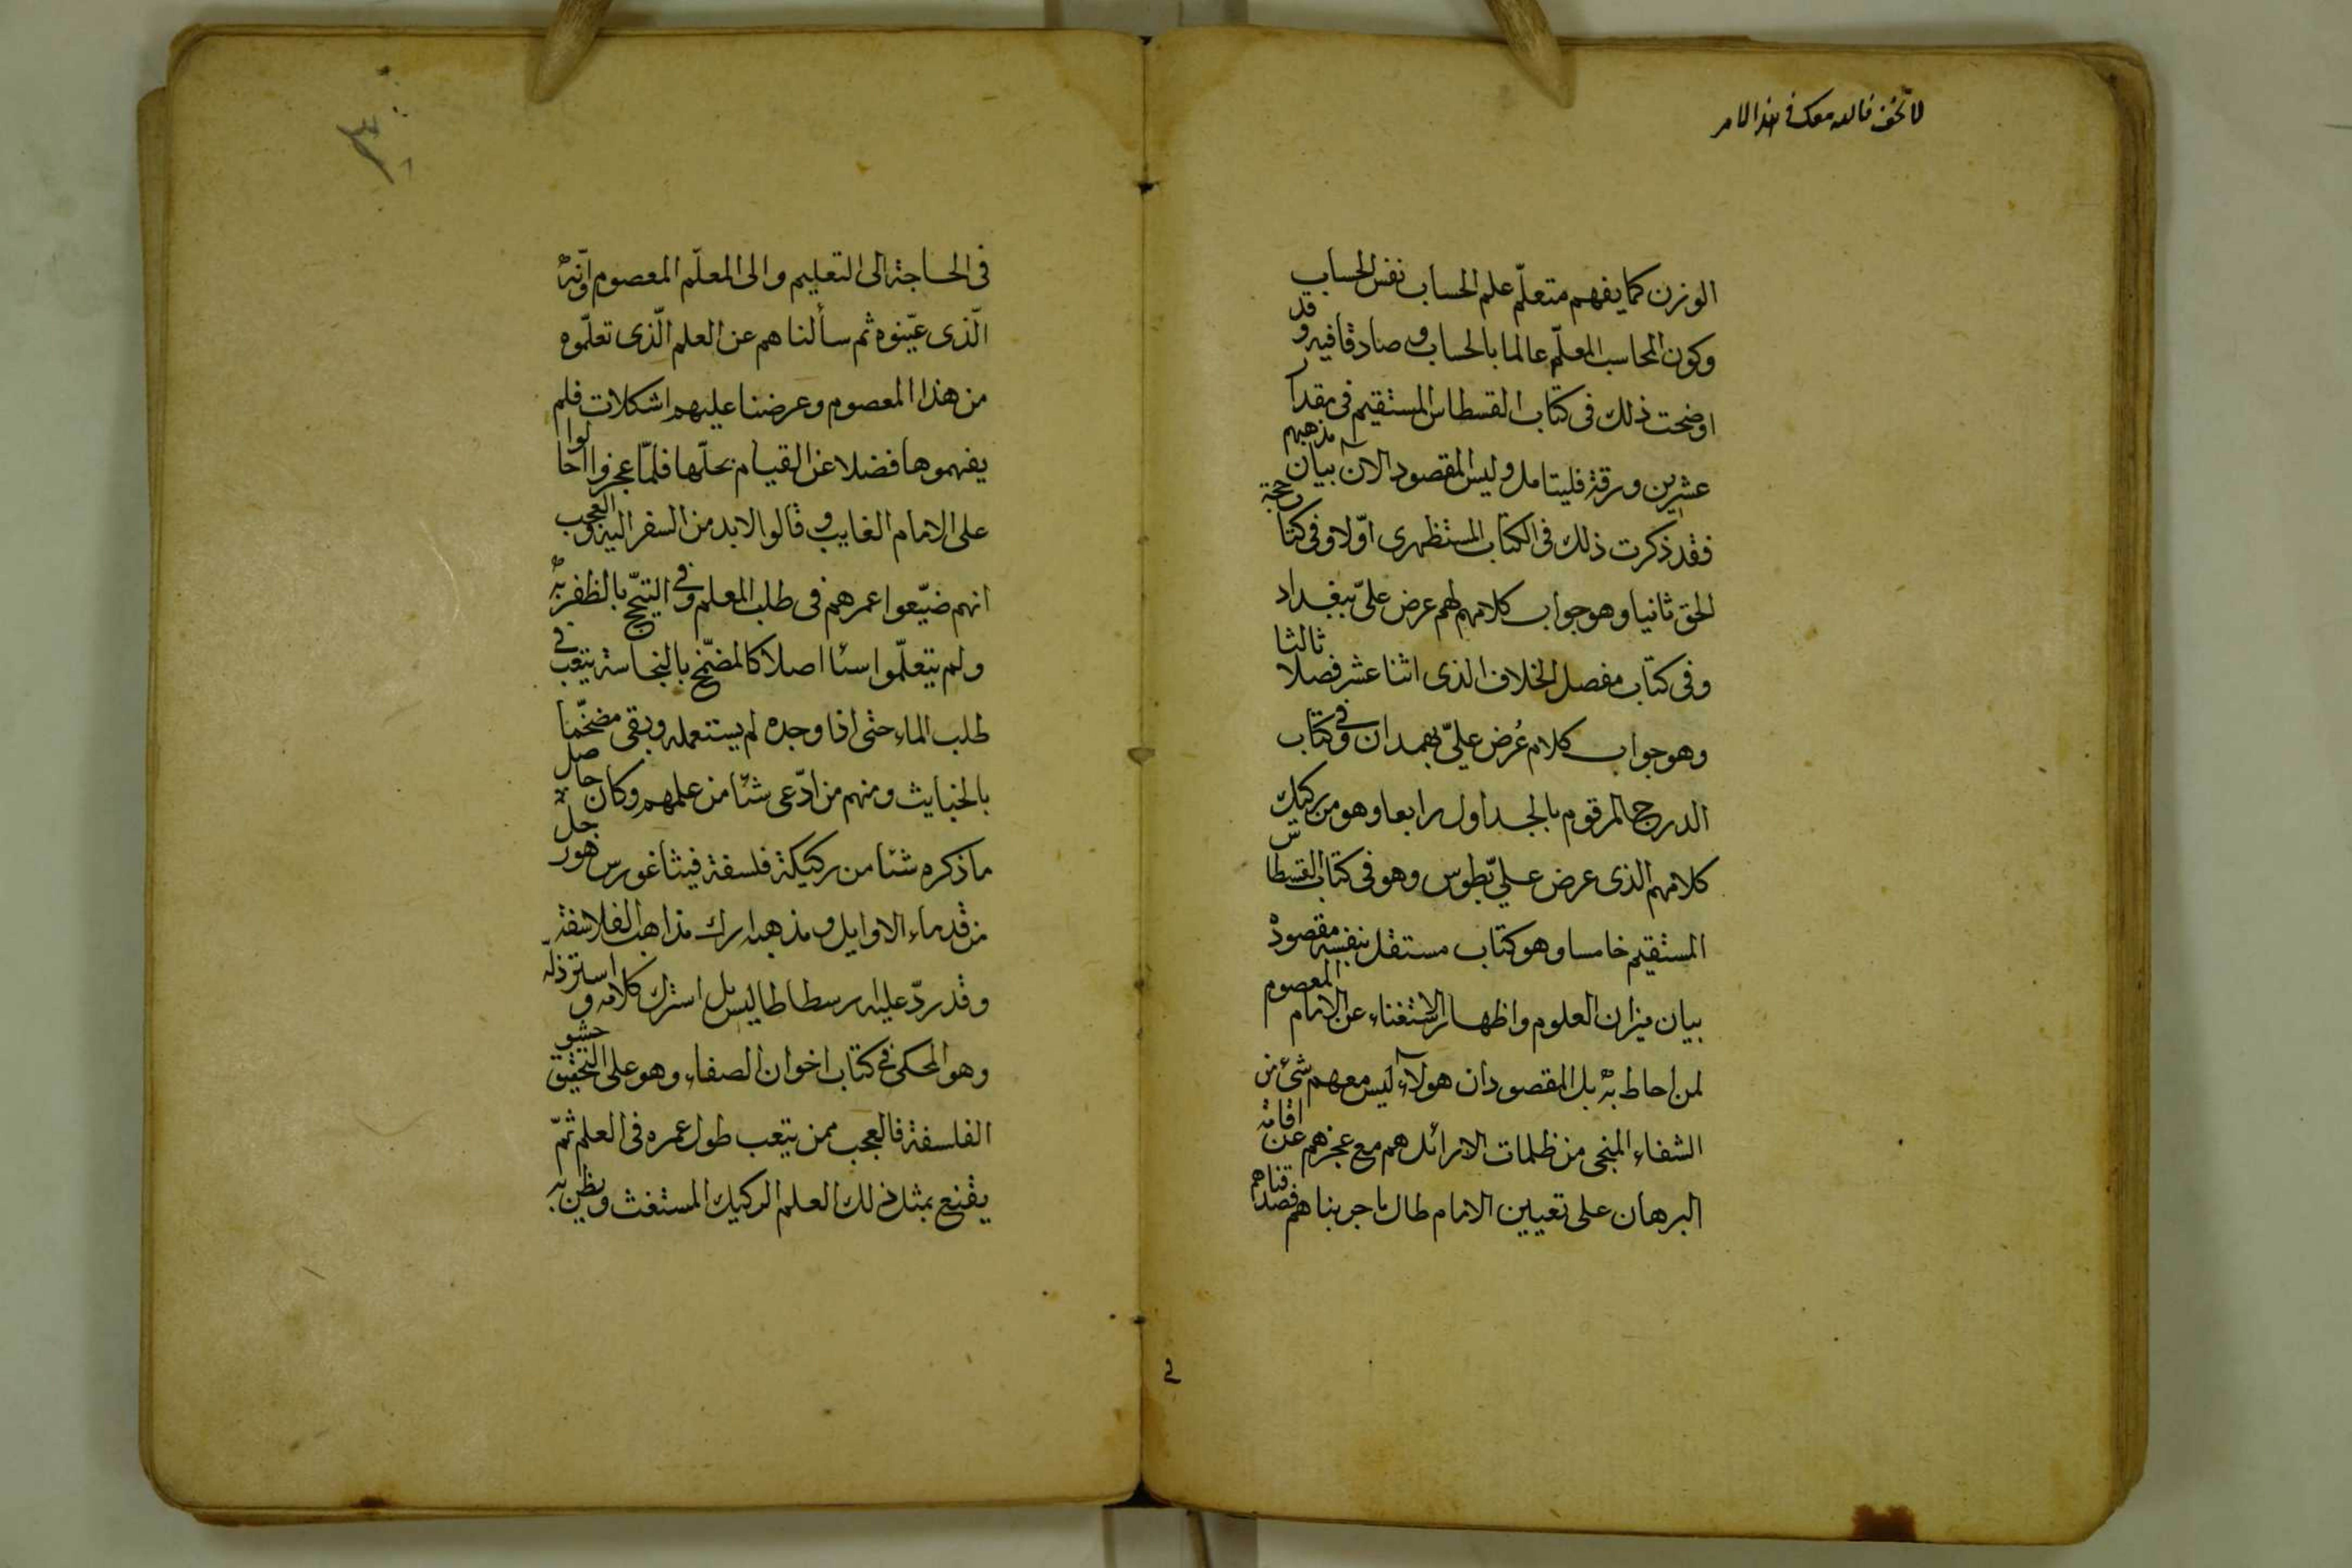 لا تخف فالله معك في هذا الامر
الوزن كما يفهم متعلّم علم الحساب نفس الحساب
وكون المحاسب المعلّم عالما بالحساب و صادقا فيه وقد
اوضحت ذلك فى كتاب القسطاس المستقيم فى مقدار
عشرين ورقة فليتامل وليس المقصود الان بيان مذهبهم
فقد ذكرت ذلك فى الكتاب المستظهرى اوّلا وفى كتاب حجة
الحق ثانيا وهو جواب كلام لهم عرض علىّ ببغداد
وفى كتاب مفصل الخلاف الذى اثنا عشر فصلا ثالثا
وهو جواب كلام عُرض علىّ بهمدان وفى كتاب
الدرج المرقوم بالجداول رابعا وهو من ركيك
كلامهم الذى عرض علىّ بطوس وهو فى كتاب القسطاس
المستقيم خامسا وهو كتاب مستقل بنفسه مقصوده
بيان ميزان العلوم واظهار الاستغناء عن الامام المعصوم
لمن احاط به بل المقصود ان هولآء ليس معهم شئ من
الشفاء المنجى من ظلمات الارائل هم مع عجزهم عن اقامة
البرهان على تعيين الامام طال ما جربناهم فصدقناهم
فى
فى الحاجة الى التعليم والى المعلّم المعصوم وانّه
الّذى عيّنوه ثم سألناهم عن العلم الّذى تعلّموه
من هذا المعصوم وعرضنا عليهم اشكلات فلم
يفهموها فضلا عن القيام بحلّها فلمّا عجزوا احالوا
على الامام الغايب و قالوا لابد من السفر اليه والعجب
انهم ضيّعوا عمرهم فى طلب المعلم وفى التبجّح بالظفر به
ولم يتعلّموا سئا اصلا كالمضمّخ بالنجاسة يتعب فى
طلب الماء حتى اذا وجده لم يستعمله وبقى مضخّما
بالخبايث ومنهم من ادّعى شئا من علمهم وكان حاصل
ما ذكره شئا من ركيكة فلسفة فيثاغورس هو رجل
من قدماء الاوايل و مذهبه ارك مذاهب الفلاسفة
وقد ردّ عليه رسطاطاليس بل استرك كلامه و استرذله
وهو المحكى فى كتاب اخوان الصفاء وهو على التحقيق حشو
الفلسفة فالعجب ممن يتعب طول عمره فى العلم ثمّ
يقنع بمثل ذلك العلم الركيك المستغث ويظن به